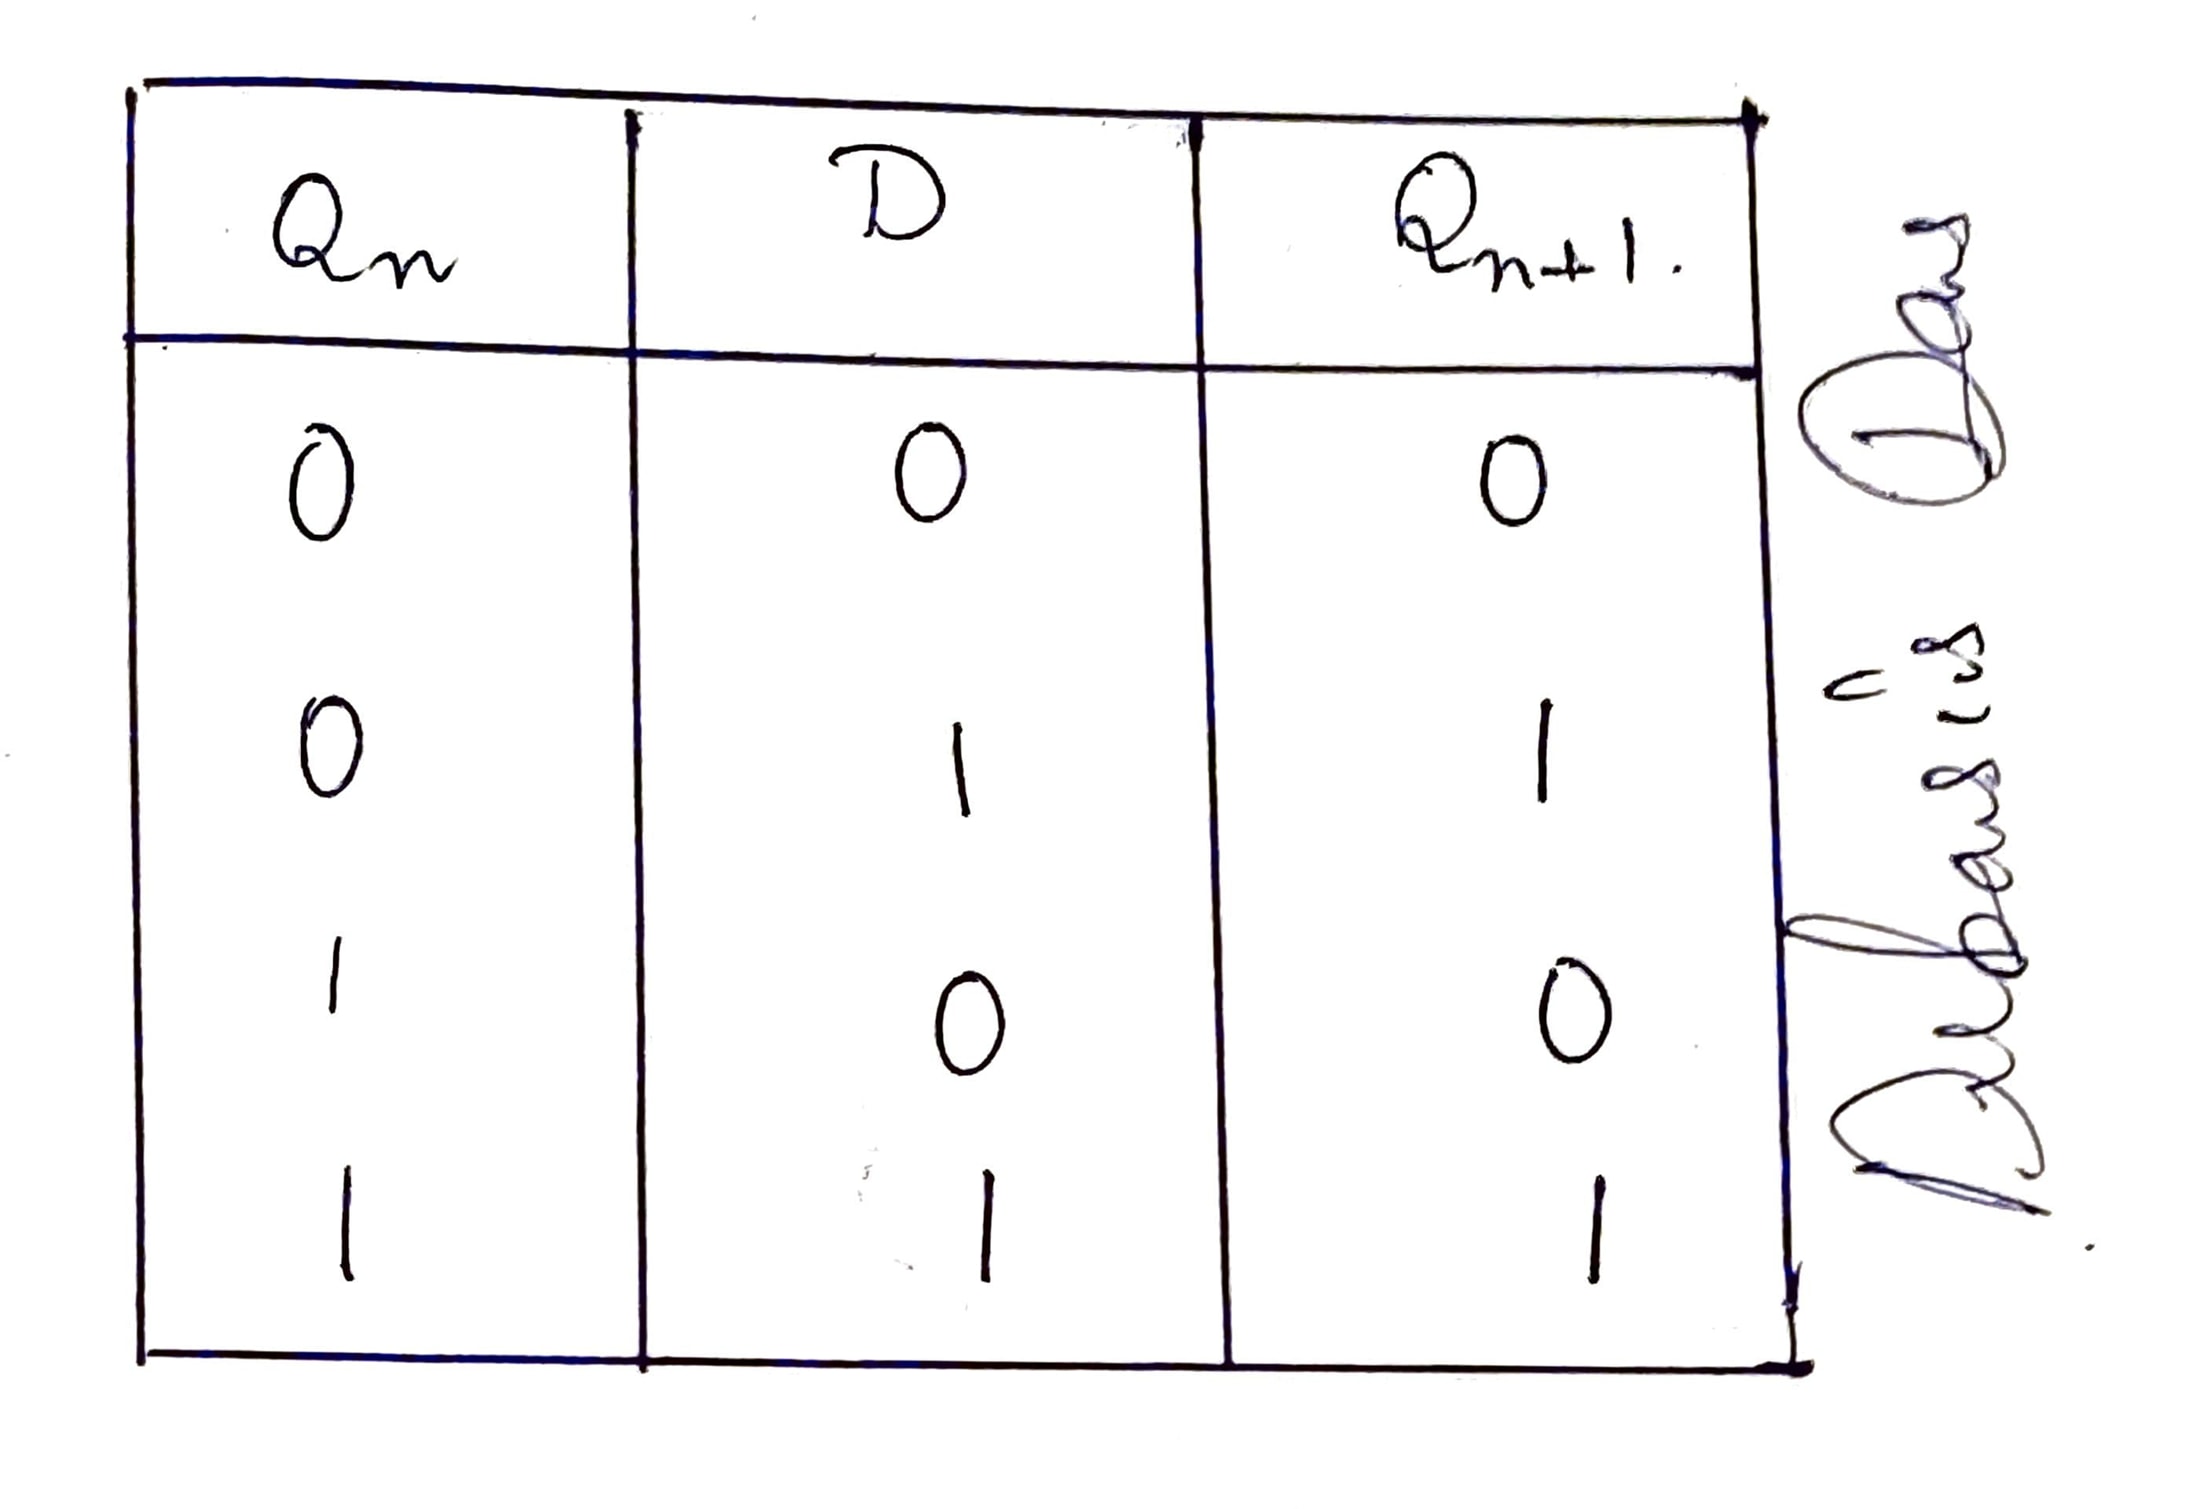 Qn D Qn+1.
0 0 0
0 1 1
1 0 0
1 1 1
Debasis Das